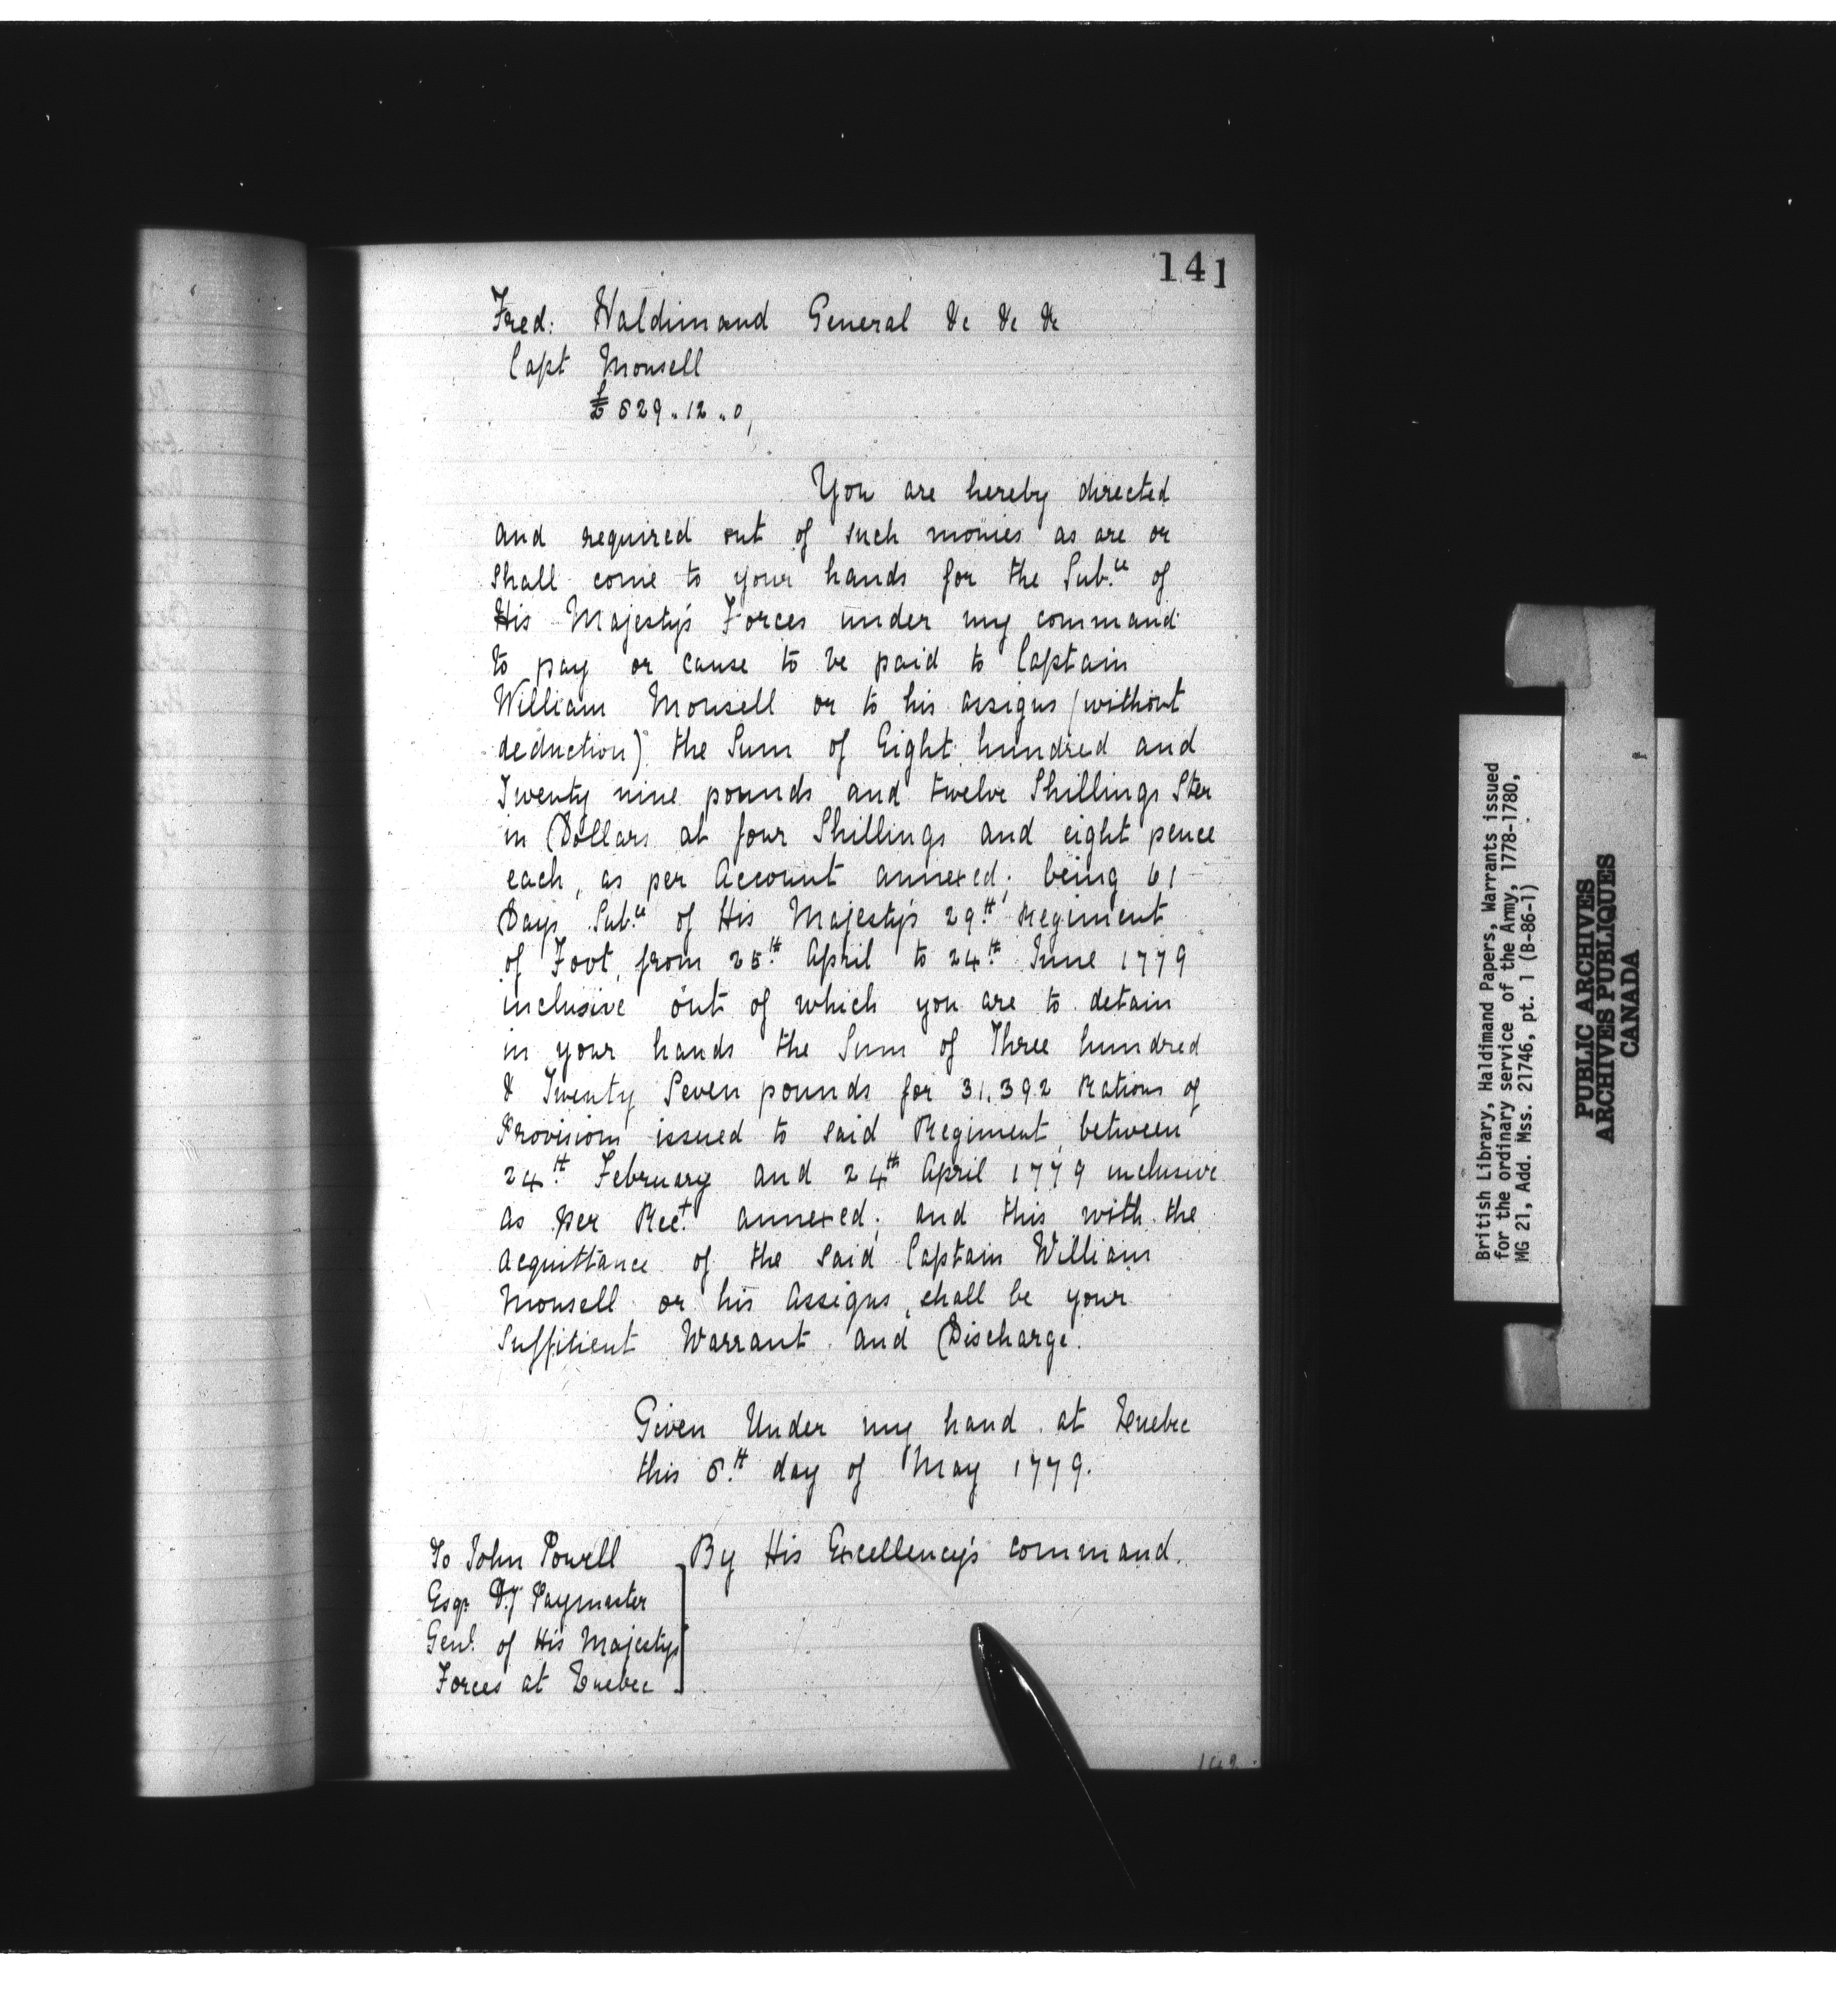 141
Fred: Haldimand General &c &c &c
Capt Monsell
£ 829 .. 12 .. 0,
You are hereby directed
and required out of such monies as are or
shall come to your hands for the Sub.ce of
His Majesty's Forces under my command
to pay or cause to be paid to Captain
William Monsell or to his assigns (without
deduction) the Sum of Eight hundred and
Twenty nine pounds and twelve Shillings Ster
in Dollars at four Shillings and eight pence
each, as per Account annexed; being 61
Days Sub.ce of His Majesty's 29th Regiment
of Foot, from 25th April to 24th June 1779
inclusive out of which you are to detain
in your hands the Sum of Three hundred
& Twenty Seven pounds for 31,392 Rations of
Provisions issued to said Regiment between
24th February and 24th April 1779 inclusive
as per Rec.t annexed; and this with the
acquittance of the said Captain William
Monsell or his Assigns, shall be your
Suffitient Warrant and Discharge.
Given Under my hand at Quebec
this 6th day of May 1779.
To John Powell
Esqr. D.y Paymaster
Genl. of His Majestys
Forces at Quebec
By His Excellency's command.
British Library, Haldimand Papers, Warrants issued
for the ordinary service of the Army, 1778-1780,
MG 21, Add. Mss. 21746, pt. 1 (B-86-1)
PUBLIC ARCHIVES
ARCHIVES PUBLIQUES
CANADA